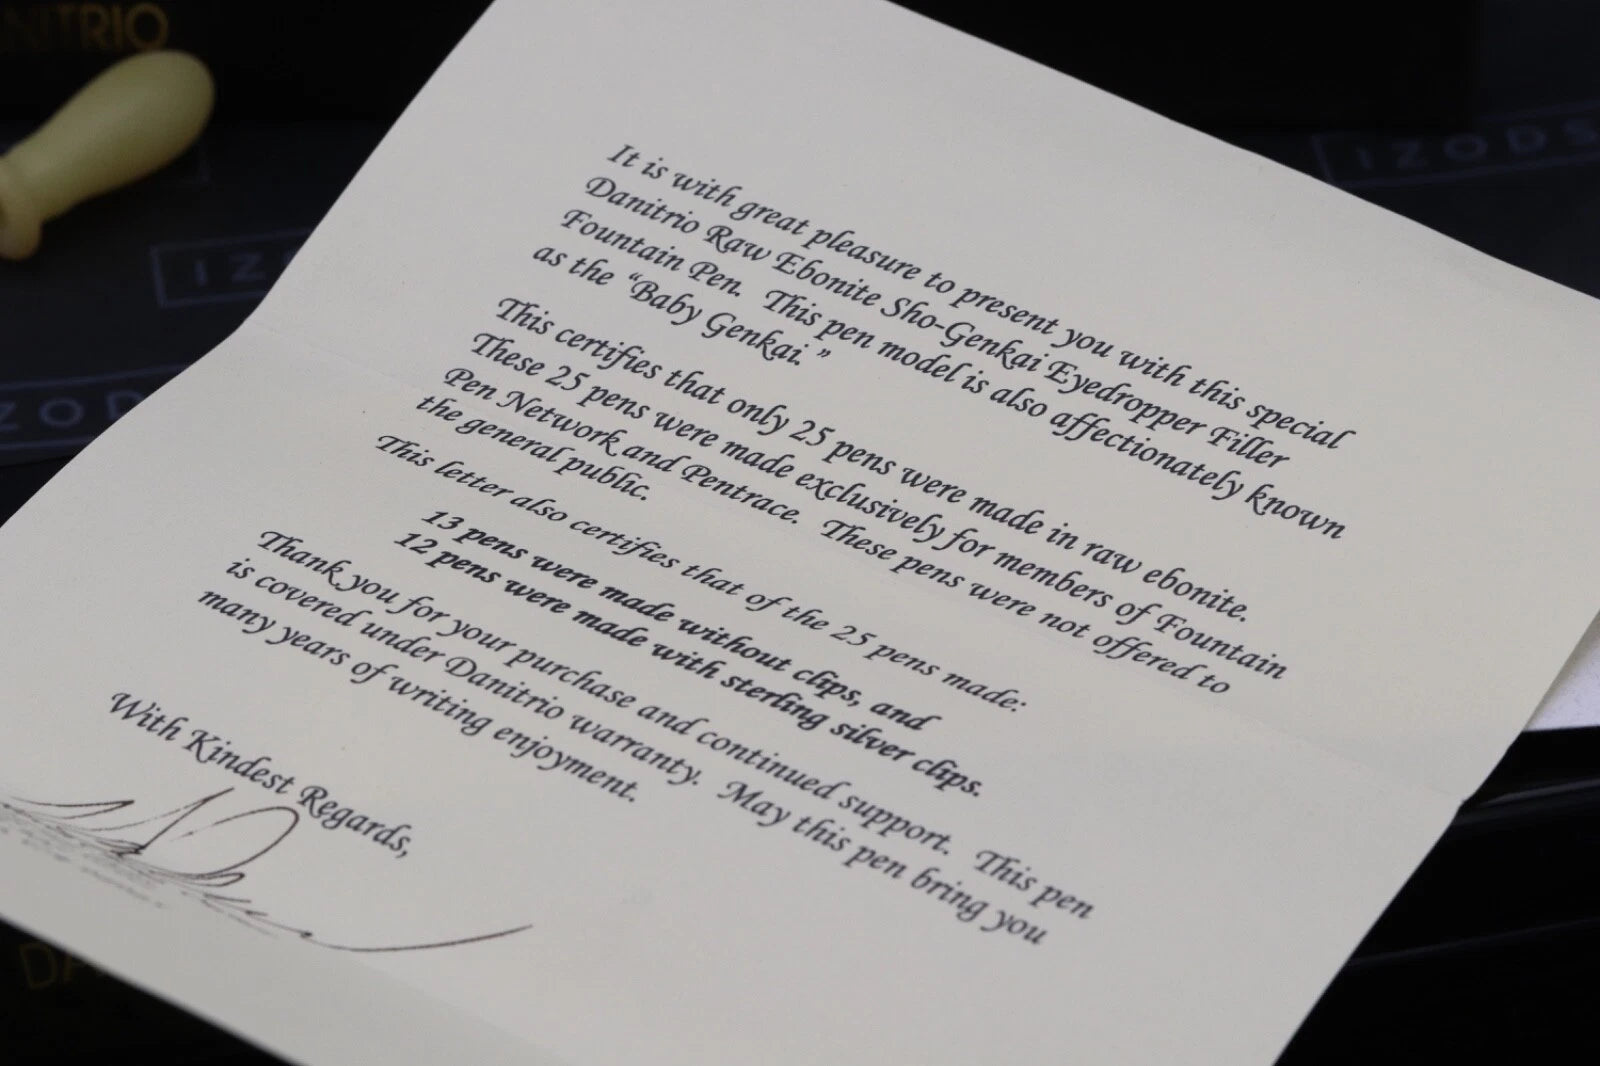 DANITRIO
IZODS
IZ
IZOD
It is with great pleasure to present you with this special
Danitrio Raw Ebonite Sho-Genkai Eyedropper Filler
Fountain Pen. This pen model is also affectionately known
as the “Baby Genkai.”
This certifies that only 25 pens were made in raw ebonite.
These 25 pens were made exclusively for members of Fountain
Pen Network and Pentrace. These pens were not offered to
the general public.
This letter also certifies that of the 25 pens made:
13 pens were made without clips, and
12 pens were made with sterling silver clips.
Thank you for your purchase and continued support. This pen
is covered under Danitrio warranty. May this pen bring you
many years of writing enjoyment.
With Kindest Regards,
DA